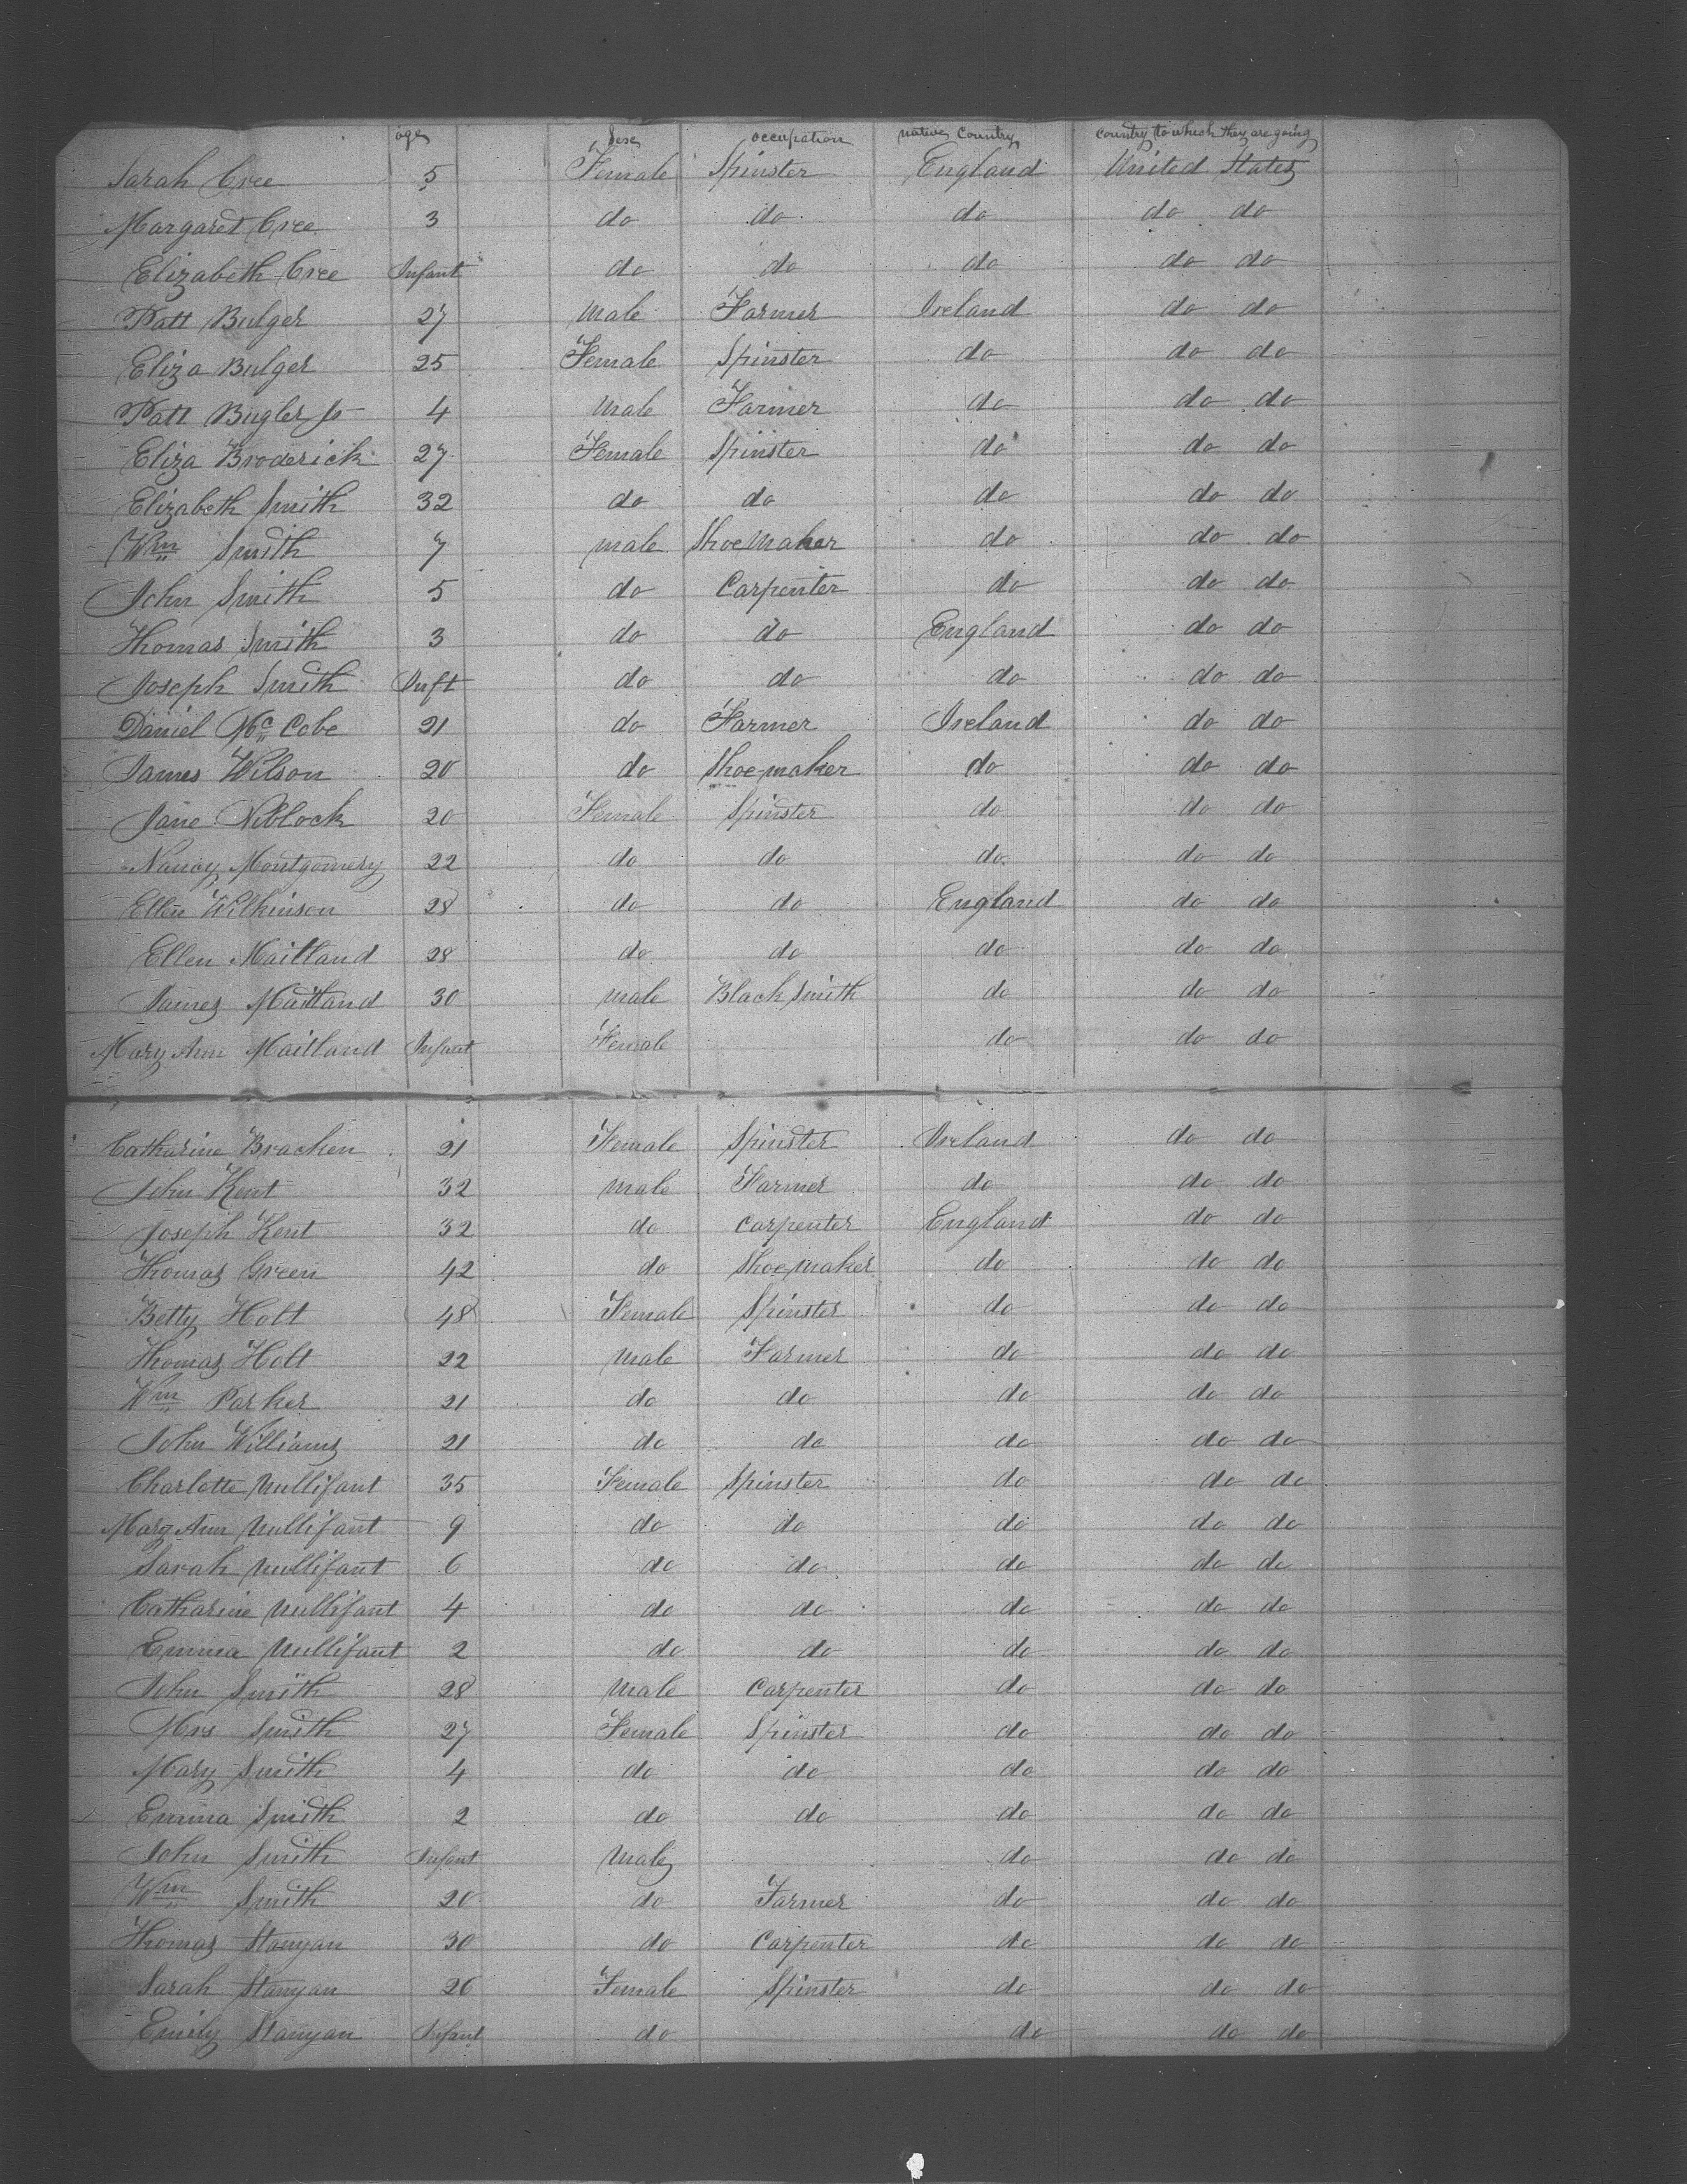 age sex occupation native Country Country to which they are going
Sarah Cree 5 Female Spinster England United States
Margaret Cree 3 do do do do do
Elizabeth Cree Infant do do do do do
Patt Bulger 27 Male Farmer Ireland do do
Eliza Bulger 25 Female Spinster do do do
Patt Bugler Jr 4 Male Farmer do do do
Eliza Broderick 27 Female Spinster do do do
Elizabeth Smith 32 do do do do do
Wm Smith 7 male Shoemaker do do do
John Smith 5 do Carpenter do do do
Thomas Smith 3 do do England do do
Joseph Smith Inft do do do do do
Daniel McCobe 21 do Farmer Ireland do do
James Wilson 20 do Shoe-maker do do do
Jane Niblock 20 Female Spinster do do do
Nancy Montgomery 22 do do do do do
Ellen Wilkinson 28 do do England do do
Ellen Maitland 28 do do do do do
James Maitland 30 male Black Smith do do do
Mary Ann Maitland Infant Female do do do
Catharine Bracken 21 Female Spinster Ireland do do
John Kent 32 male Farmer do do do
Joseph Kent 32 do Carpenter England do do
Thomas Green 42 do Shoemaker do do do
Betty Holt 48 Female Spinster do do do
Thomas Holt 22 Male Farmer do do do
Wm Parker 21 do do do do do
John Williams 21 do do do do do
Charlotte Mullifant 35 Female Spinster do do do
Mary Ann Mullifant 9 do do do do do
Sarah Mullifant 6 do do do do do
Catharine Mullifant 4 do do do do do
Emma Mullifant 2 do do do do do
John Smith 28 Male Carpenter do do do
Mrs Smith 27 Female Spinster do do do
Mary Smith 4 do do do do do
Emma Smith 2 do do do do do
John Smith Infant Male do do do
Wm Smith 20 do Farmer do do do
Thomas Stanyan 30 do Carpenter do do do
Sarah Stanyan 26 Female Spinster do do do
Emily Stanyan Infant do do do do